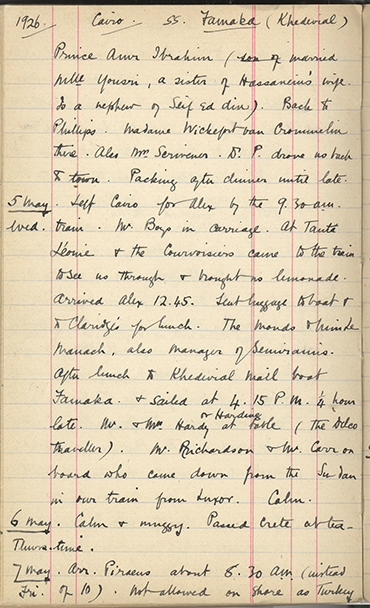 1926. Cairo. SS. Famaka (Khedivial)
Prince Amr Ibrahim (son of married
Mlle Yousri, a sister of Hassanein's wife.
Is a nephew of Seif Ed din). Back to
Phillips. Madame Wickefort van Crommelin
there. Also Mrs Scrivener. D. P. drove us back
to town. Packing after dinner until late.
5 May. Left Cairo for Alex by the 9.30 am.
Wed. train. Mr Boys in carriage. At Tanta
Léonie & the Courvoisiers came to the train
to see us through & brought us lemonade.
Arrived Alex 12.45. Sent luggage to boat &
to Claridge's for lunch. The
Manach, also manager of Semiramis.
After lunch to Khedivial mail boat
Famaka. & sailed at 4.15 P.M. ¼ hour
late. Mr. & Mrs Hardy or Harding at table (the Delco
traveller). Mr. Richardson & Mr. Carr on
board who came down from the Sudan
in our train from Luxor. Calm.
6 May. Calm & muggy. Passed Crete at tea-
Thurs. time.
7 May. Arr. Piraeus about 8.30 am. (instead
Fri. of 10). Not allowed on shore as Turkey